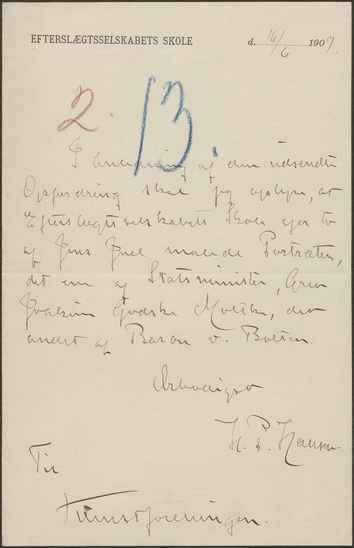 EFTERSLÆGTSSELSKABETS SKOLE d. 14/6 1907.
2. 13.
I Anledning af den udsendte
Opfordring skal jeg oplyse, at
Efterslægtsselskabets Skole ejer to
af Jens Juel malede Portræter,
det ene af Statsminister, Grev
Joakim Godske Moltke, det
andet af Baron v. Bolten.
Ærbødigst
H. P. Hansen
Til
Kunstforeningen.